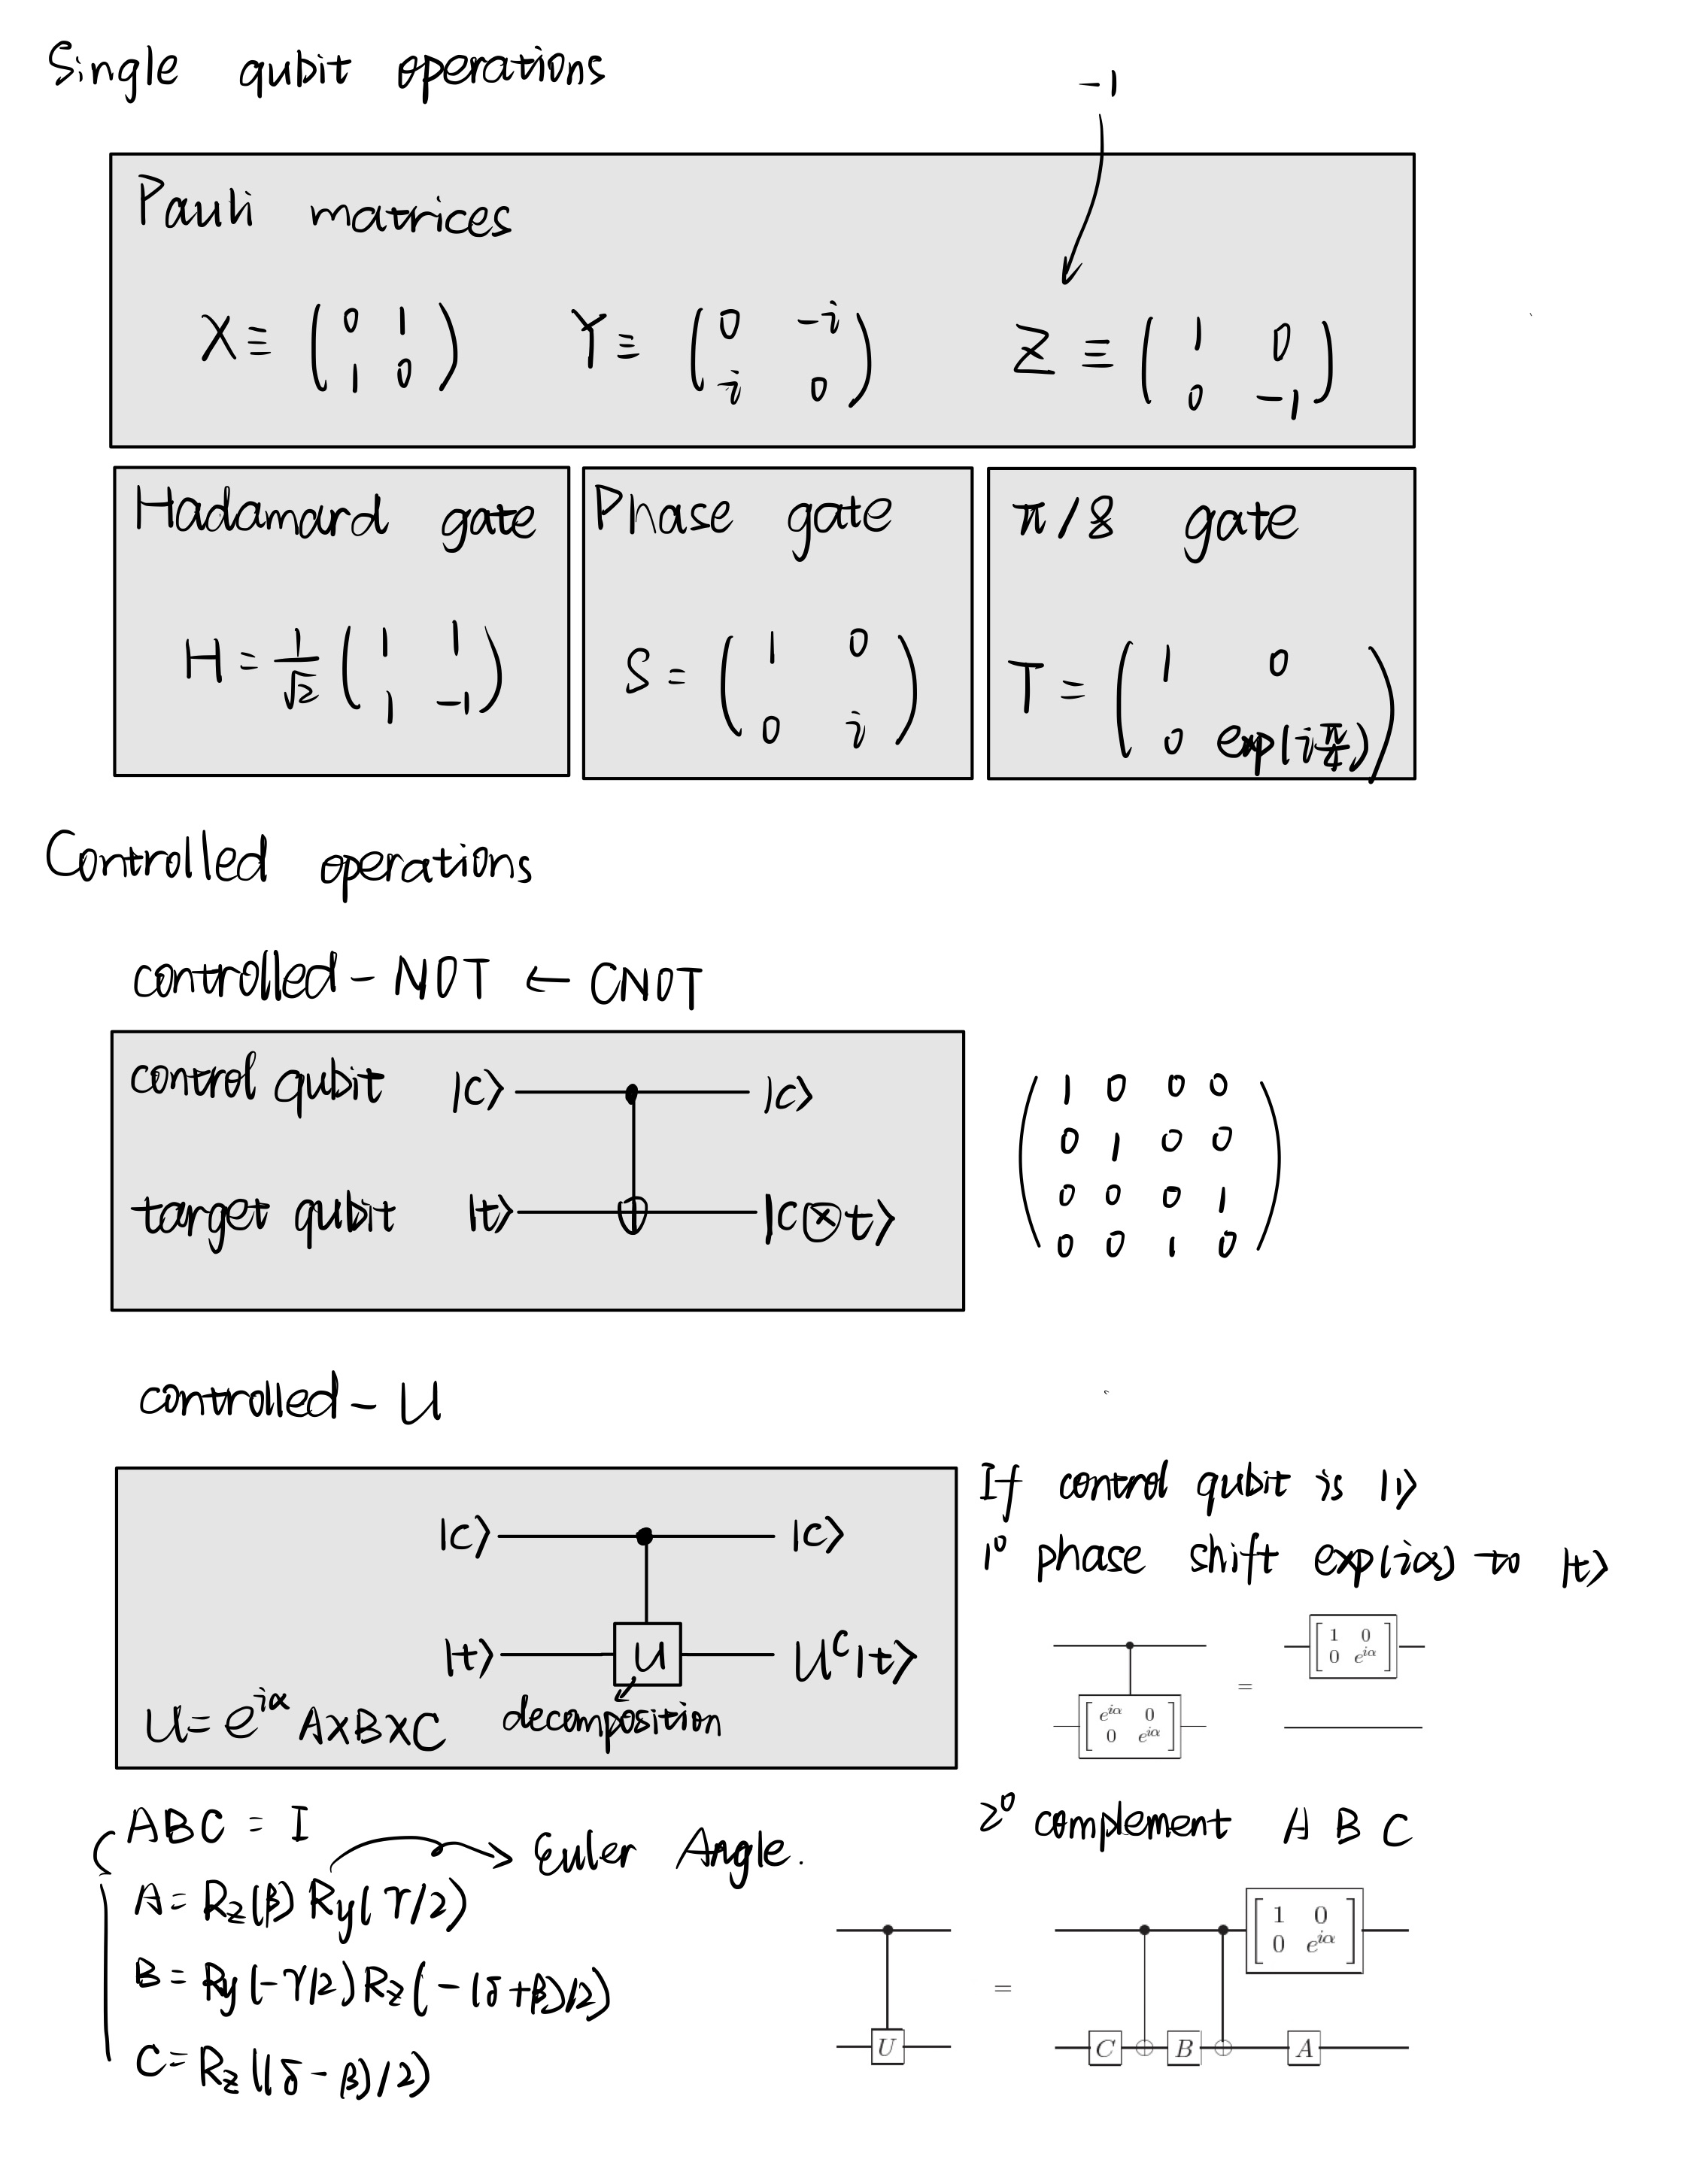 Single qubit operations
-1
Pauli matrices
X ≡ ( 0 1 ; 1 0 ) Y ≡ ( 0 -i ; i 0 ) Z ≡ ( 1 0 ; 0 -1 )
Hadamard gate
H = 1/√2 ( 1 1 ; 1 -1 )
Phase gate
S = ( 1 0 ; 0 i )
π/8 gate
T = ( 1 0 ; 0 exp(i π/4) )
Controlled operations
controlled - NOT ← CNOT
control qubit |c> |c>
target qubit |t> |c⊗t>
( 1 0 0 0
0 1 0 0
0 0 0 1
0 0 1 0 )
controlled - U
|c> |c>
|t> U U^c|t>
U = e^{iα} A×B×C decomposition
If control qubit is |1>
1° phase shift exp(iα) to |t>
[ e^{iα} 0 ; 0 e^{iα} ] = [ 1 0 ; 0 e^{iα} ]
ABC = I
Euler Angle.
A = Rz(β) Ry(γ/2)
B = Ry(-γ/2) Rz(-(δ+β)/2)
C = Rz((δ-β)/2)
2° complement A B C
U = C B A [ 1 0 ; 0 e^{iα} ]